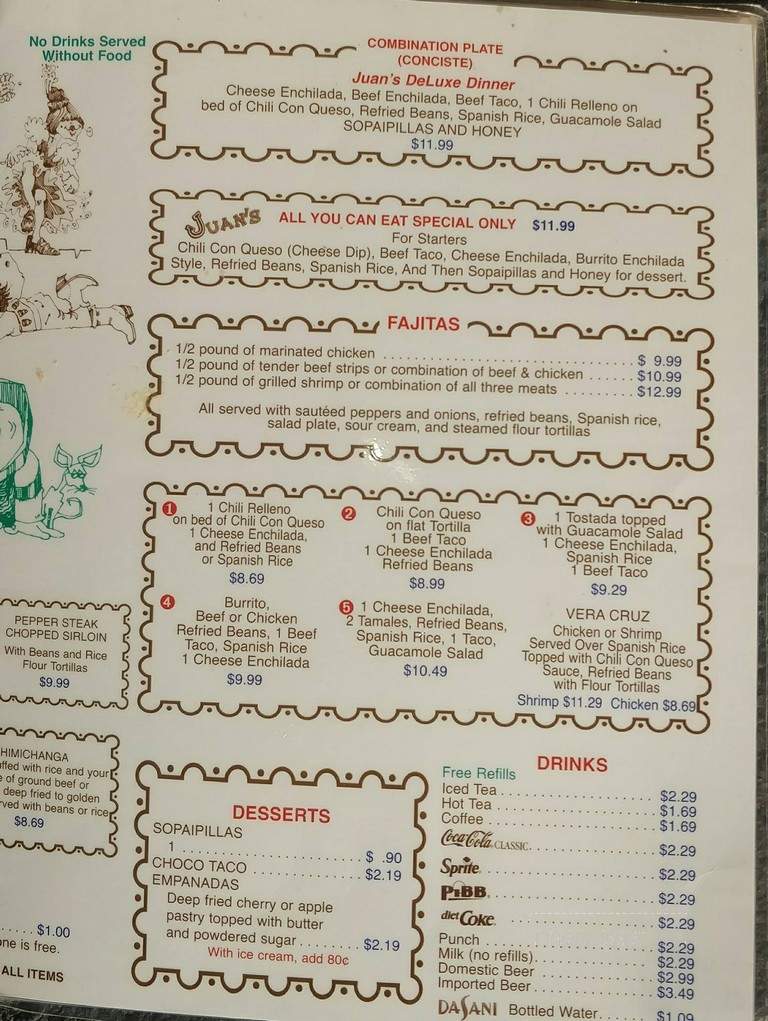 No Drinks Served
Without Food
COMBINATION PLATE
(CONCISTE)
Juan's DeLuxe Dinner
Cheese Enchilada, Beef Enchilada, Beef Taco, 1 Chili Relleno on
bed of Chili Con Queso, Refried Beans, Spanish Rice, Guacamole Salad
SOPAIPILLAS AND HONEY
$11.99
JUAN'S ALL YOU CAN EAT SPECIAL ONLY $11.99
For Starters
Chili Con Queso (Cheese Dip), Beef Taco, Cheese Enchilada, Burrito Enchilada
Style, Refried Beans, Spanish Rice, And Then Sopaipillas and Honey for dessert.
FAJITAS
1/2 pound of marinated chicken $ 9.99
1/2 pound of tender beef strips or combination of beef & chicken $10.99
1/2 pound of grilled shrimp or combination of all three meats $12.99
All served with sautéed peppers and onions, refried beans, Spanish rice,
salad plate, sour cream, and steamed flour tortillas
1 1 Chili Relleno
on bed of Chili Con Queso
1 Cheese Enchilada,
and Refried Beans
or Spanish Rice
$8.69
2 Chili Con Queso
on flat Tortilla
1 Beef Taco
1 Cheese Enchilada
Refried Beans
$8.99
3 1 Tostada topped
with Guacamole Salad
1 Cheese Enchilada,
Spanish Rice
1 Beef Taco
$9.29
4 Burrito,
Beef or Chicken
Refried Beans, 1 Beef
Taco, Spanish Rice
1 Cheese Enchilada
$9.99
5 1 Cheese Enchilada,
2 Tamales, Refried Beans,
Spanish Rice, 1 Taco,
Guacamole Salad
$10.49
VERA CRUZ
Chicken or Shrimp
Served Over Spanish Rice
Topped with Chili Con Queso
Sauce, Refried Beans
with Flour Tortillas
Shrimp $11.29 Chicken $8.69
PEPPER STEAK
CHOPPED SIRLOIN
With Beans and Rice
Flour Tortillas
$9.99
HIMICHANGA
ffed with rice and your
e of ground beef or
deep fried to golden
rved with beans or rice
$8.69
$1.00
one is free.
ALL ITEMS
DESSERTS
SOPAIPILLAS
1 $ .90
CHOCO TACO $2.19
EMPANADAS
Deep fried cherry or apple
pastry topped with butter
and powdered sugar $2.19
With ice cream, add 80¢
DRINKS
Free Refills
Iced Tea $2.29
Hot Tea $1.69
Coffee $1.69
Coca-Cola CLASSIC $2.29
Sprite $2.29
PiBB $2.29
diet Coke $2.29
Punch $2.29
Milk (no refills) $2.29
Domestic Beer $2.99
Imported Beer $3.49
DASANI Bottled Water $1.09